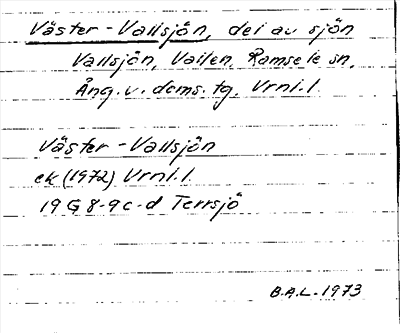 Väster-Vallsjön, del av sjön
Vallsjön, Vallen, Ramsele sn,
Ång. v. doms. tg. Vrnl.l.
Väster-Vallsjön
ek (1972) Vrnl.l.
19 G 8-9 c-d Terrsjö
B.A.L. 1973